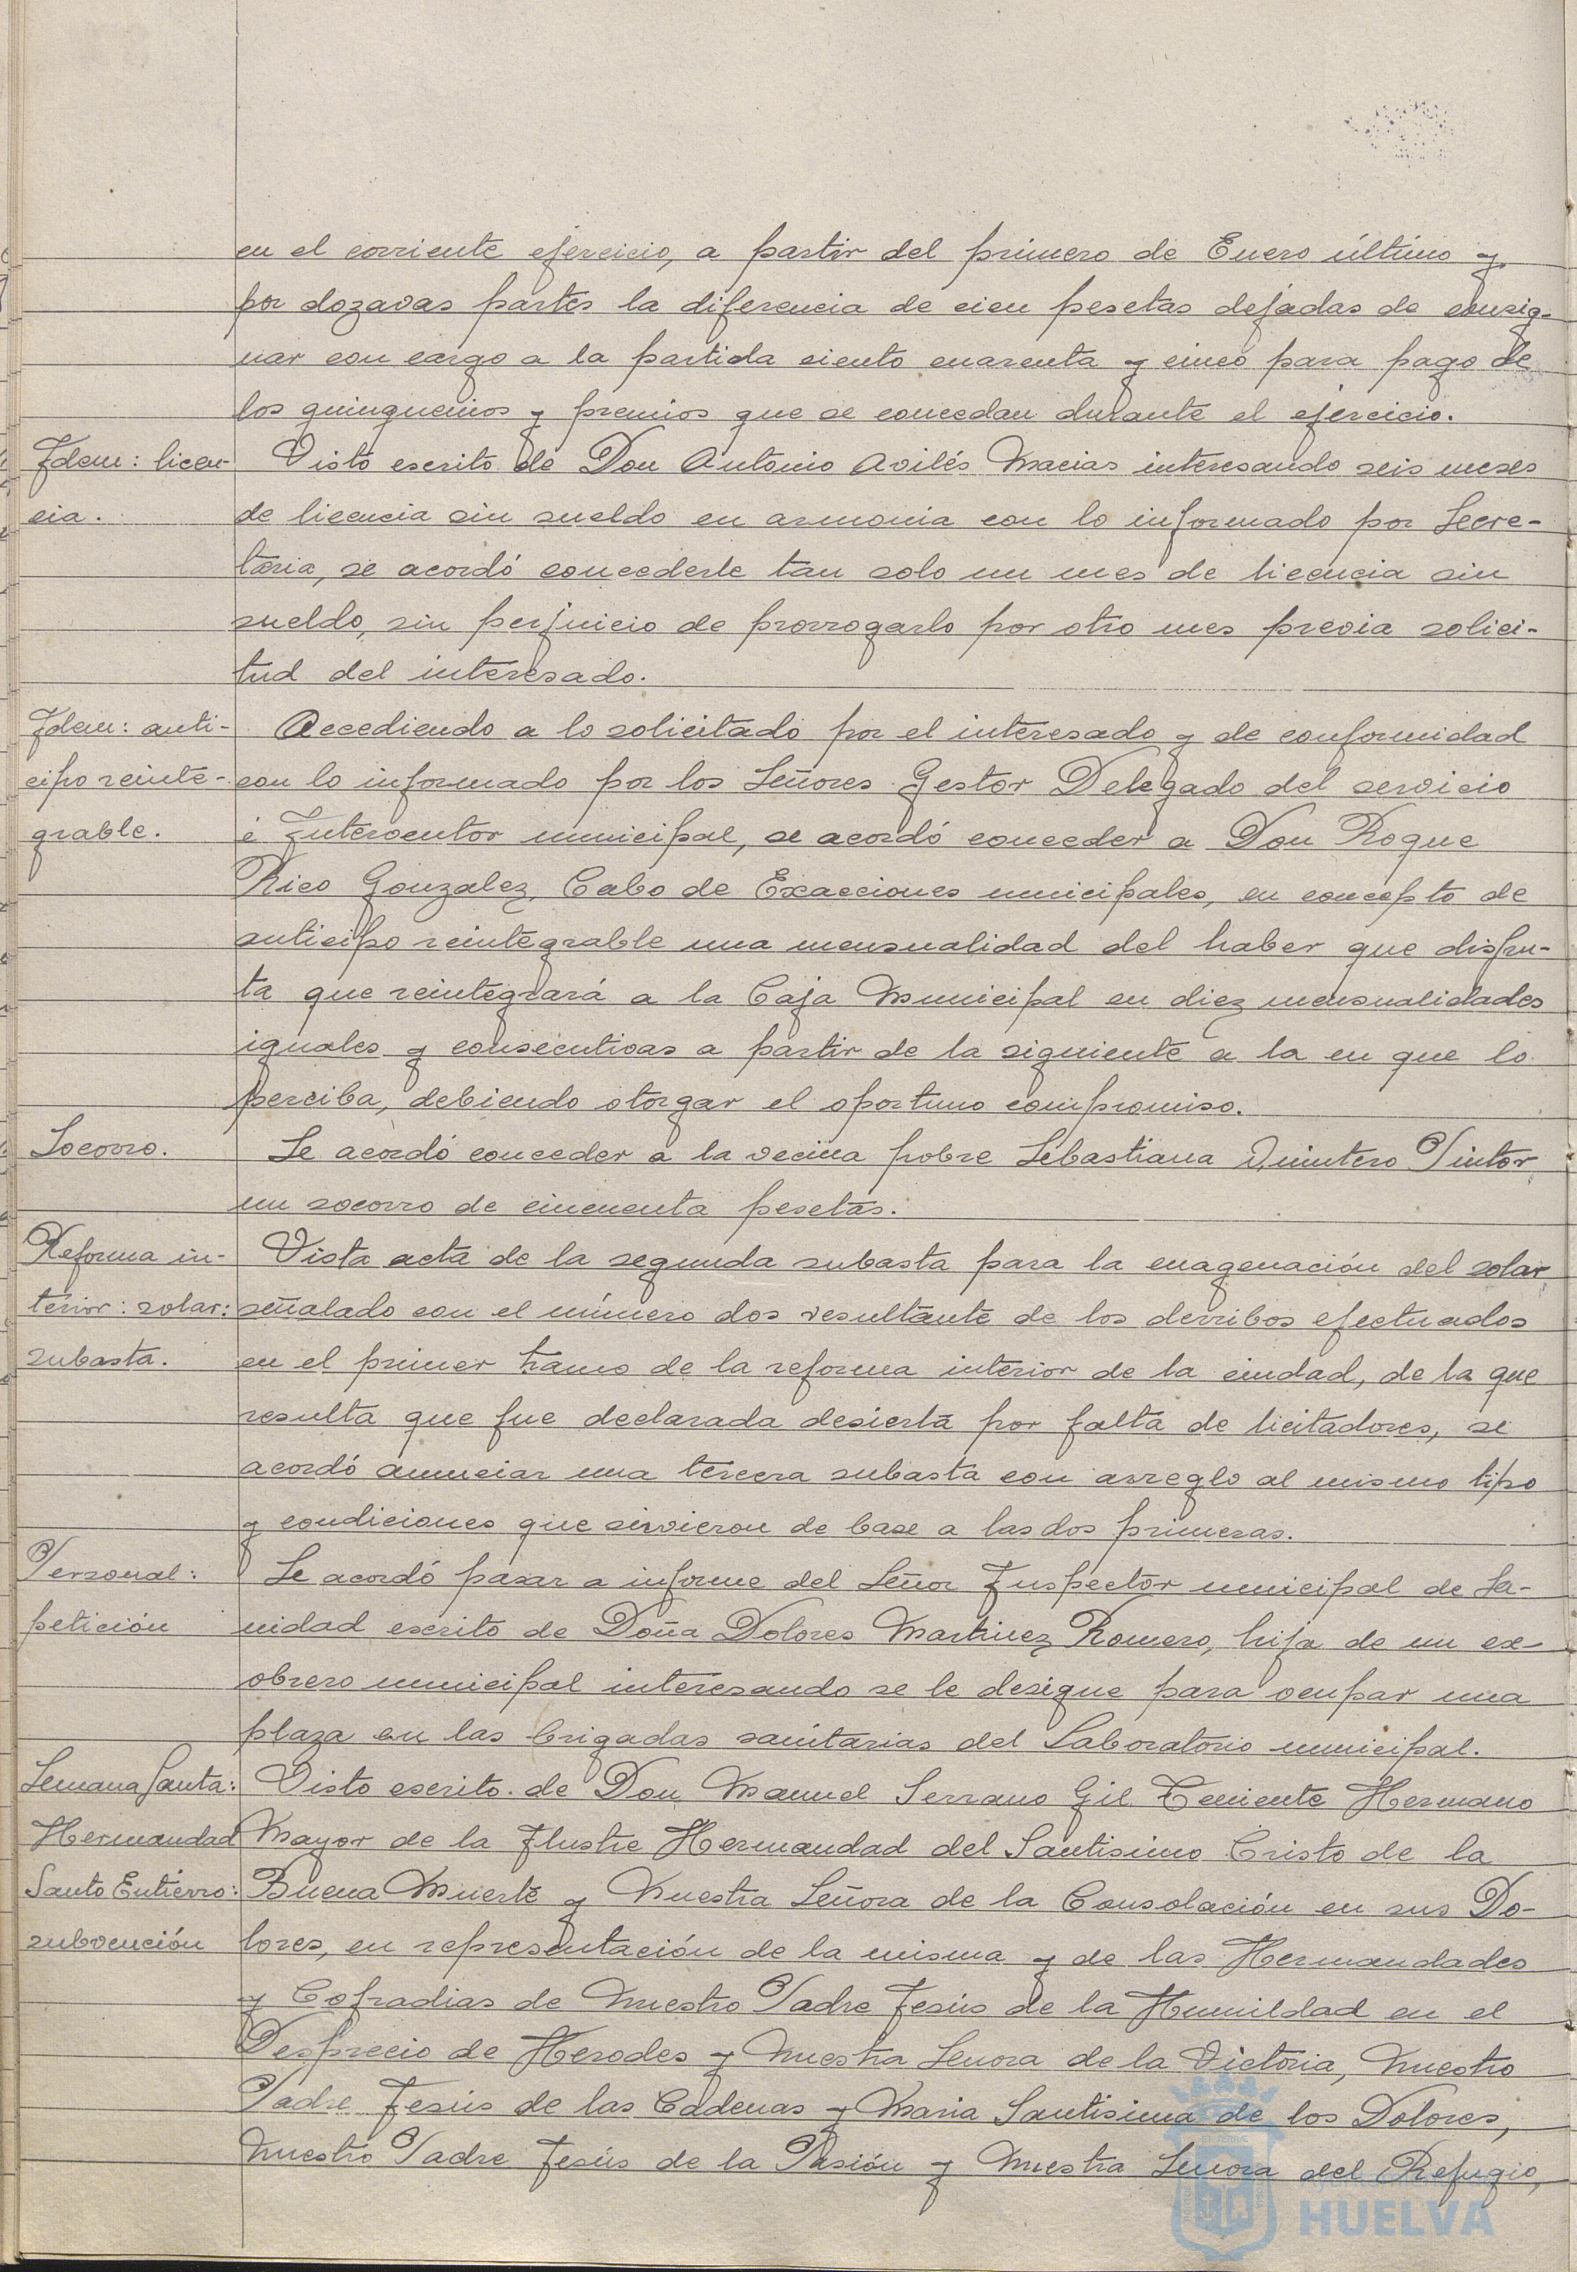 en el corriente ejercicio, a partir del primero de Enero último y
por dozavas partes la diferencia de cien pesetas dejadas de consig-
nar con cargo a la partida ciento cuarenta y cinco para pago de
los quinquenios y premios que se concedan durante el ejercicio.
Idem: licen-
cia.
Visto escrito de Don Antonio Avilés Macias interesando seis meses
de licencia sin sueldo en armonia con lo informado por Secre-
taria, se acordó concederle tan solo un mes de licencia sin
sueldo, sin perjuicio de prorrogarlo por otro mes previa solici-
tud del interesado.
Idem: anti-
cipo reinte-
grable.
Accediendo a lo solicitado por el interesado y de conformidad
con lo informado por los Señores Gestor Delegado del servicio
é Interventor municipal, se acordó conceder a Don Roque
Rico Gonzalez, Cabo de Exacciones municipales, en concepto de
anticipo reintegrable una mensualidad del haber que disfru-
ta que reintegrará a la Caja Municipal en diez mensualidades
iguales y consecutivas a partir de la siguiente a la en que lo
perciba, debiendo otorgar el oportuno compromiso.
Socorro.
Se acordó conceder a la vecina pobre Sebastiana Quintero Pintor
un socorro de cincuenta pesetas.
Reforma in-
terior: solar:
subasta.
Vista acta de la segunda subasta para la enagenación del solar
señalado con el número dos resultante de los derribos efectuados
en el primer tramo de la reforma interior de la ciudad, de la que
resulta que fue declarada desierta por falta de licitadores, se
acordó anunciar una tercera subasta con arreglo al mismo tipo
y condiciones que sirvieron de base a las dos primeras.
Personal:
petición
Se acordó pasar a informe del Señor Inspector municipal de Sa-
nidad escrito de Doña Dolores Martinez Romero, hija de un ex-
obrero municipal interesando se le desigue para ocupar una
plaza en las brigadas sanitarias del Laboratorio municipal.
Semana Santa:
Hermandad
Santo Entierro:
subvención
Visto escrito de Don Manuel Serrano Gil Teniente Hermano
Mayor de la Ilustre Hermandad del Santisimo Cristo de la
Buena Muerte y Nuestra Señora de la Consolación en sus Do-
lores, en representación de la misma y de las Hermandades
y Cofradias de Nuestro Padre Jesús de la Humildad en el
Desprecio de Herodes y Nuestra Senora de la Victoria, Nuestro
Padre Jesús de las Cadenas y Maria Santisima de los Dolores,
Nuestro Padre Jesús de la Pasión y Nuestra Senora del Refugio,
HUELVA